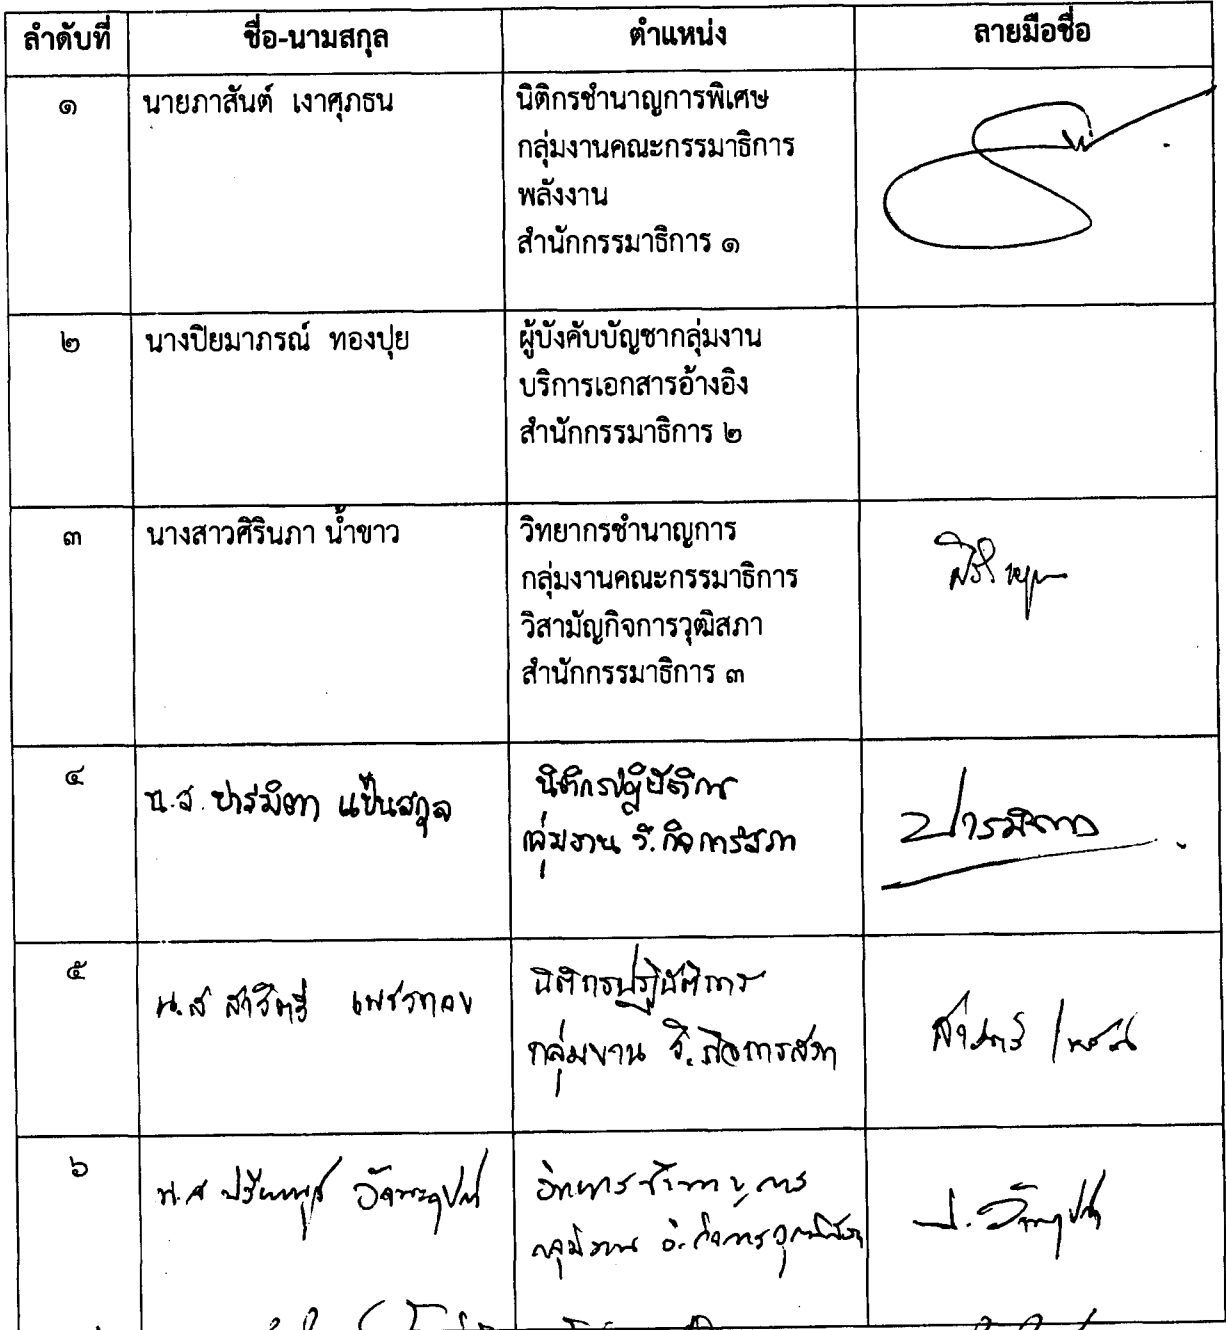 ลำดับที่ ชื่อ-นามสกุล ตำแหน่ง ลายมือชื่อ
๑ นายภาสันต์ เงาศุภธน นิติกรชำนาญการพิเศษ
กลุ่มงานคณะกรรมาธิการ
พลังงาน
สำนักกรรมาธิการ ๑
๒ นางปิยมาภรณ์ ทองปุย ผู้บังคับบัญชากลุ่มงาน
บริการเอกสารอ้างอิง
สำนักกรรมาธิการ ๒
๓ นางสาวศิรินภา น้ำขาว วิทยากรชำนาญการ
กลุ่มงานคณะกรรมาธิการ
วิสามัญกิจการวุฒิสภา
สำนักกรรมาธิการ ๓
๔ น.ส. ปารมิตา แป้นสกุล นิติกรปฏิบัติการ ปารมิตา
กลุ่มงาน วิ.กิจการสภา
๕ น.ส สาวิตรี นิติกรปฏิบัติการ สาวิตรี
กลุ่มงาน วิ.กิจการสภา
๖ น.ส วิทยากรชำนาญการ
กลุ่มงาน วิ.กิจการวุฒิสภา